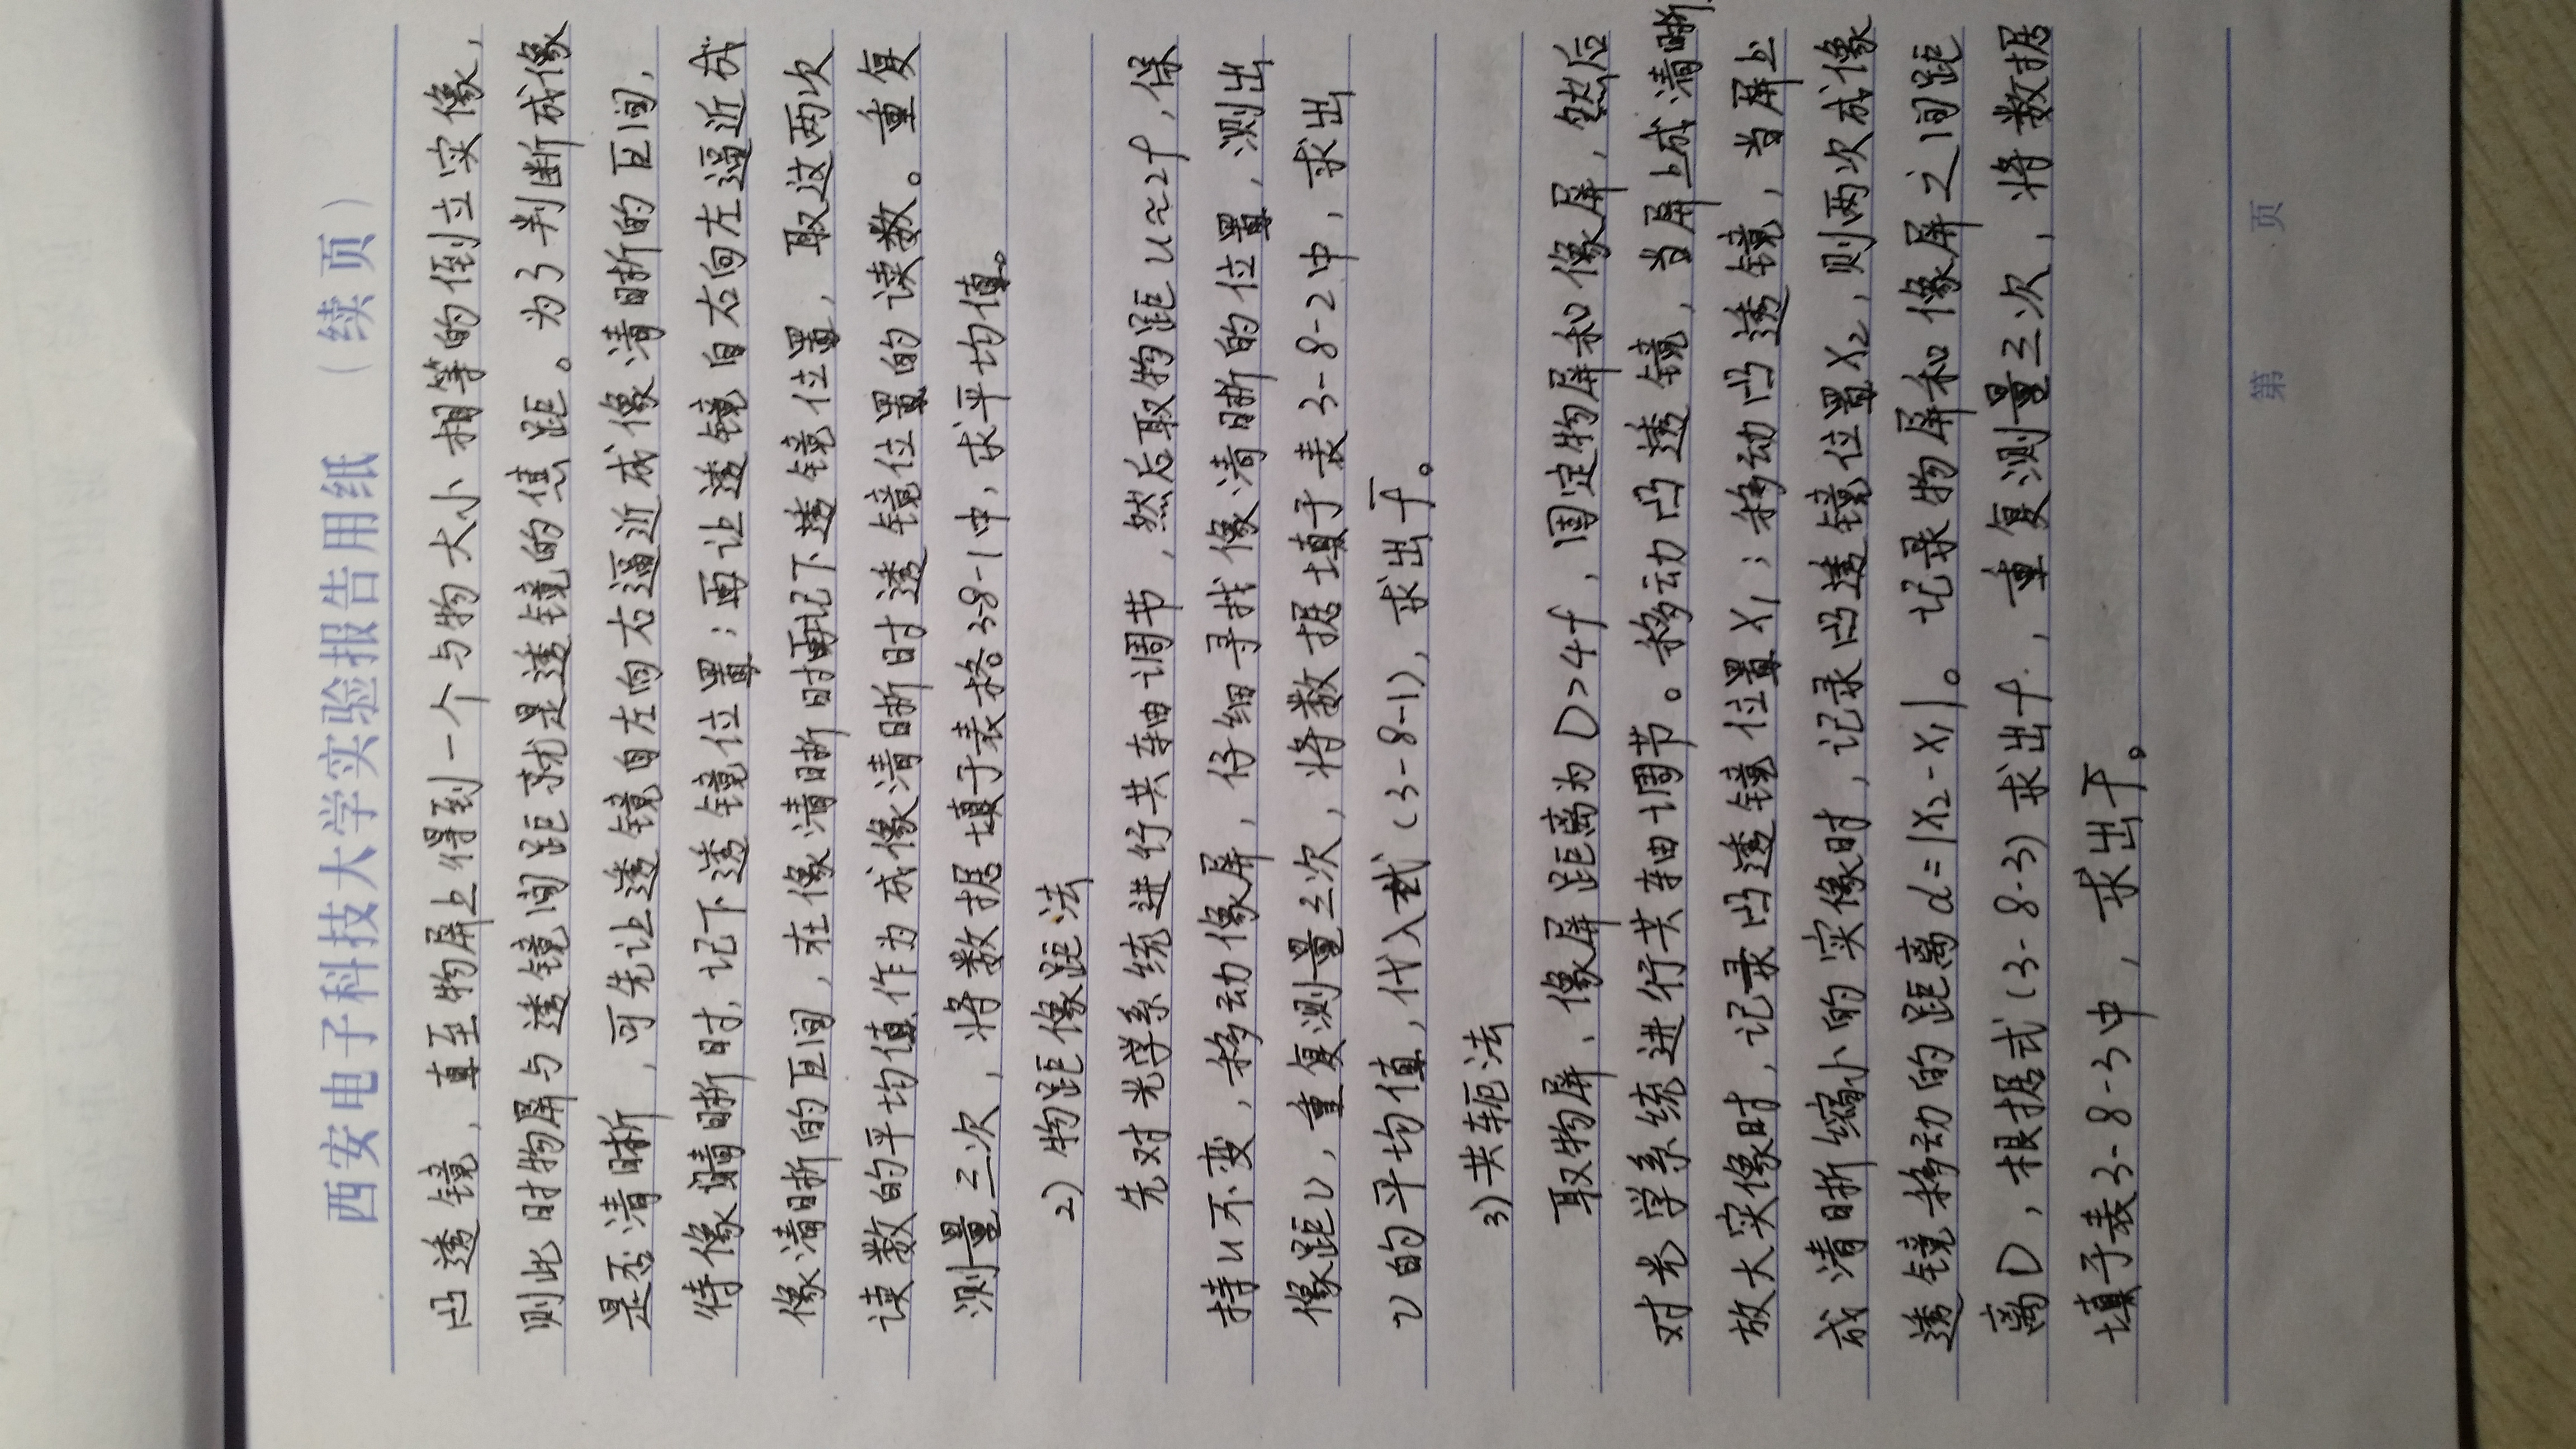 西安电子科技大学实验报告用纸 （续 页）
凸透镜，直至物屏上得到一个与物大小相等的倒立实像，
则此时物屏与透镜间距就是透镜的焦距。为了判断成像
是否清晰，可先让透镜自左向右逼近成像清晰的区间，
待像清晰时，记下透镜位置；再让透镜自右向左逼近成
像清晰的区间，在像清晰时再记下透镜位置，取这两次
读数的平均值作为成像清晰时透镜位置的读数。重复
测量三次，将数据填于表格3-8-1中，求平均值。
2）物距像距法
先对光学系统进行共轴调节，然后取物距u≈2f，保
持u不变，移动像屏，仔细寻找像清晰的位置，测出
像距v，重复测量三次，将数据填于表3-8-2中，求出
v的平均值，代入式（3-8-1），求出f̅。
3）共轭法
取物屏、像屏距离为D>4f，固定物屏和像屏，然后
对光学系统进行共轴调节。移动凸透镜，当屏上成清晰
放大实像时，记录凸透镜位置X₁；移动凸透镜，当屏上
成清晰缩小的实像时，记录凸透镜位置X₂，则两次成像
透镜移动的距离d=|X₂-X₁|。记录物屏和像屏之间距
离D，根据式（3-8-3）求出f，重复测量三次，将数据
填于表3-8-3中，求出f̅。
第 页